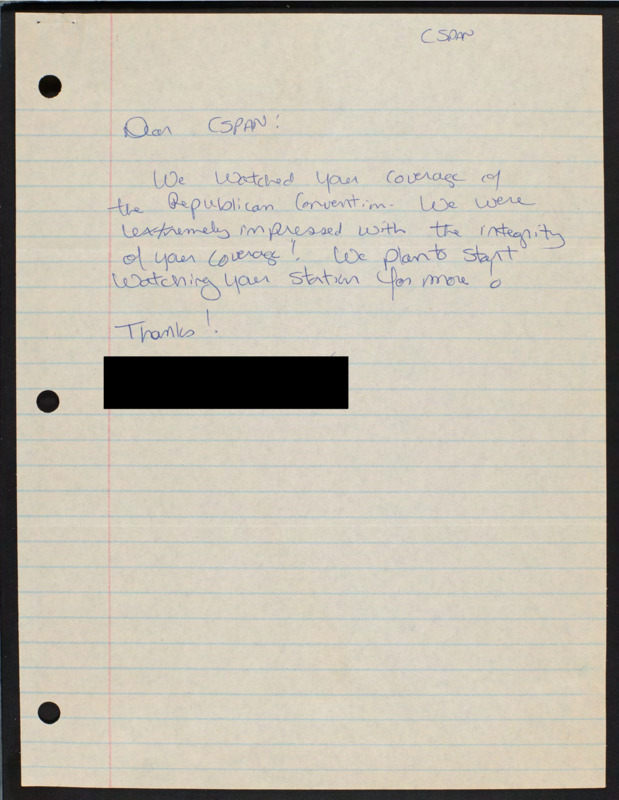 CSPAN
Dear CSPAN!
We watched your coverage of
the Republican Convention. We were
extremely impressed with the integrity
of your coverage! We plan to start
watching your station for more.
Thanks!